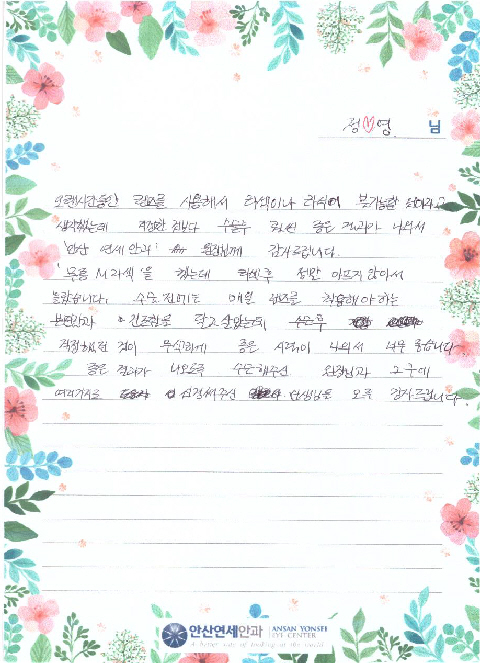 정♡영 님
오랜시간동안 렌즈를 사용해서 라섹이나 라식이 불가능할 것이라고
생각했는데 걱정한 것보다 수술후 훨씬 좋은 결과가 나와서
'안산 연세 안과' 원장님께 감사드립니다.
'목용 M라섹'을 했는데 라섹후 정말 아프지 않아서
놀랐습니다. 수술 전에는 매일 렌즈를 착용해야 하는
불편함과 건조함을 달고 살았는데 수술후
걱정했던 것이 무색하게 좋은 시력이 나와서 너무 좋습니다
좋은 결과가 나오도록 수술해주신 원장님과 그 외에
여러가지로 신경써주신 선생님들 모두 감사드립니다.
안산연세안과 ANSAN YONSEI EYE CENTER
A better way of looking at the world